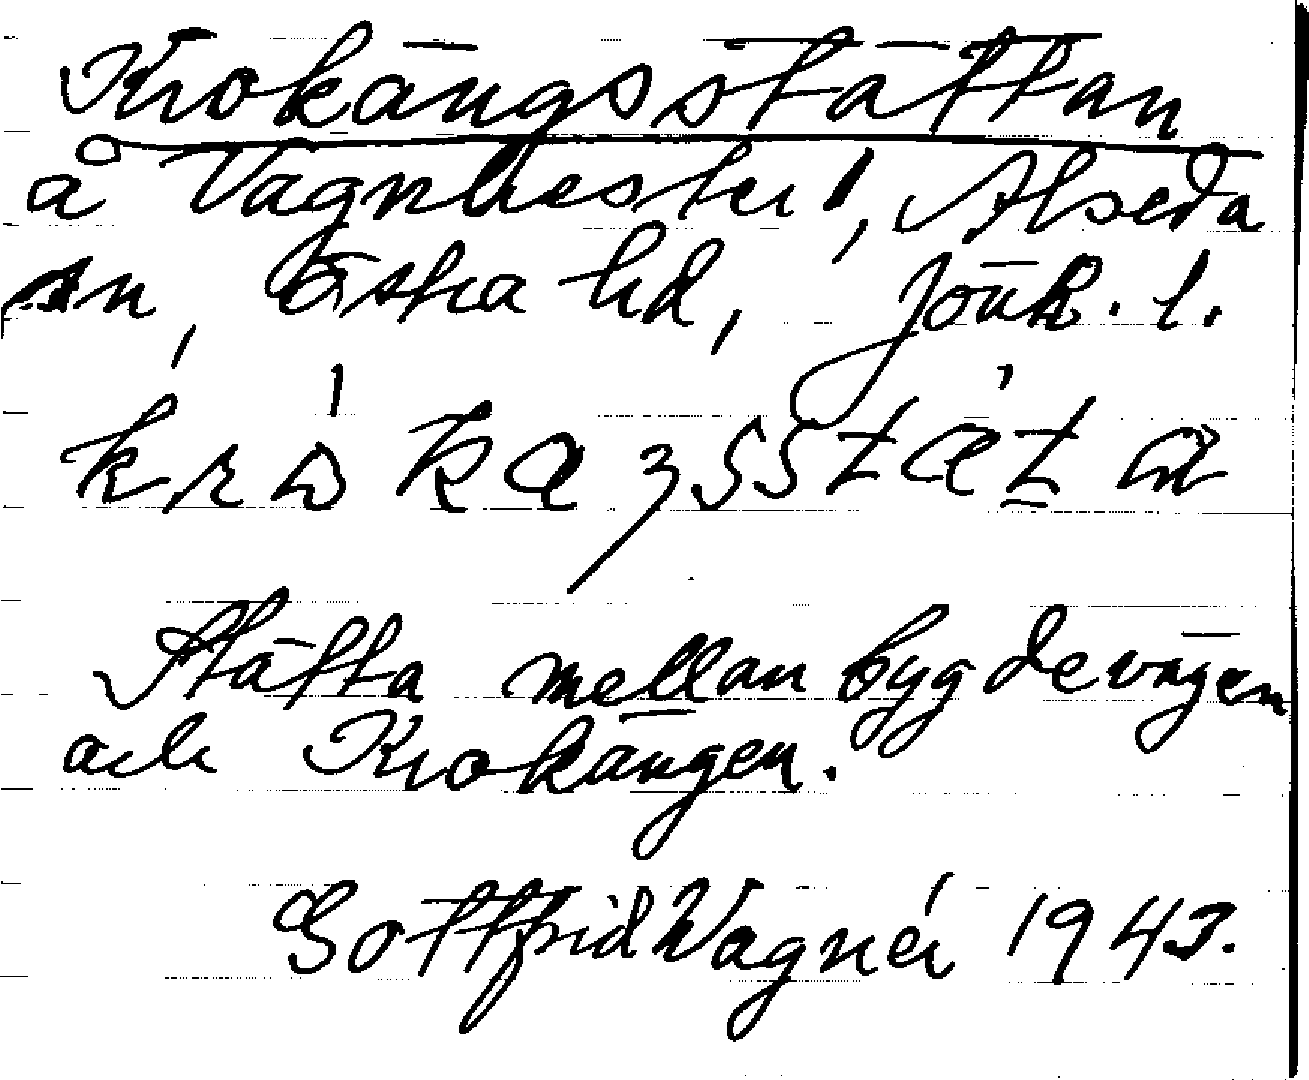 Krokängsstättan
å Vagnhester 1, Alseda
sn, Östra hd, Jönk. l.
Stätta mellan bygdevägen
och Krokängen.
Gottfrid Wagnér 1943.